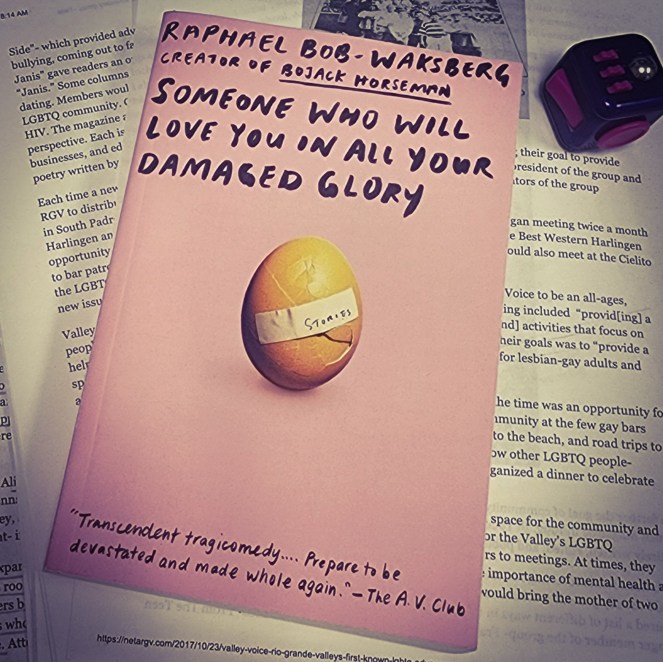 8:14 AM
Side"- which provided adv
bullying, coming out to fe
Janis" gave readers an o
"Janis." Some columns
dating. Members woul
LGBTQ community. C
HIV. The magazine r
perspective. Each is
businesses, and ed
poetry written by
Each time a new
RGV to distrib
in South Padr
Harlingen an
opportunity
to bar patr
the LGBT
new issu
Valley
peop
help
sp
a
RAPHAEL BOB-WAKSBERG
CREATOR OF BOJACK HORSEMAN
SOMEONE WHO WILL
LOVE YOU IN ALL YOUR
DAMAGED GLORY
STORIES
"Transcendent tragicomedy.... Prepare to be
devastated and made whole again." – The A.V. Club
; their goal to provide
resident of the group and
tors of the group
gan meeting twice a month
e Best Western Harlingen
ould also meet at the Cielito
Voice to be an all-ages,
ing included "provid[ing] a
nd] activities that focus on
heir goals was to "provide a
for lesbian-gay adults and
he time was an opportunity fo
munity at the few gay bars
to the beach, and road trips to
ow other LGBTQ people-
ganized a dinner to celebrate
space for the community and
or the Valley's LGBTQ
rs to meetings. At times, they
importance of mental health a
would bring the mother of two
Ali
ey,
roo
ers b
who
Att
https://netargv.com/2017/10/23/valley-voice-rio-grande-valleys-first-known-lgbtq